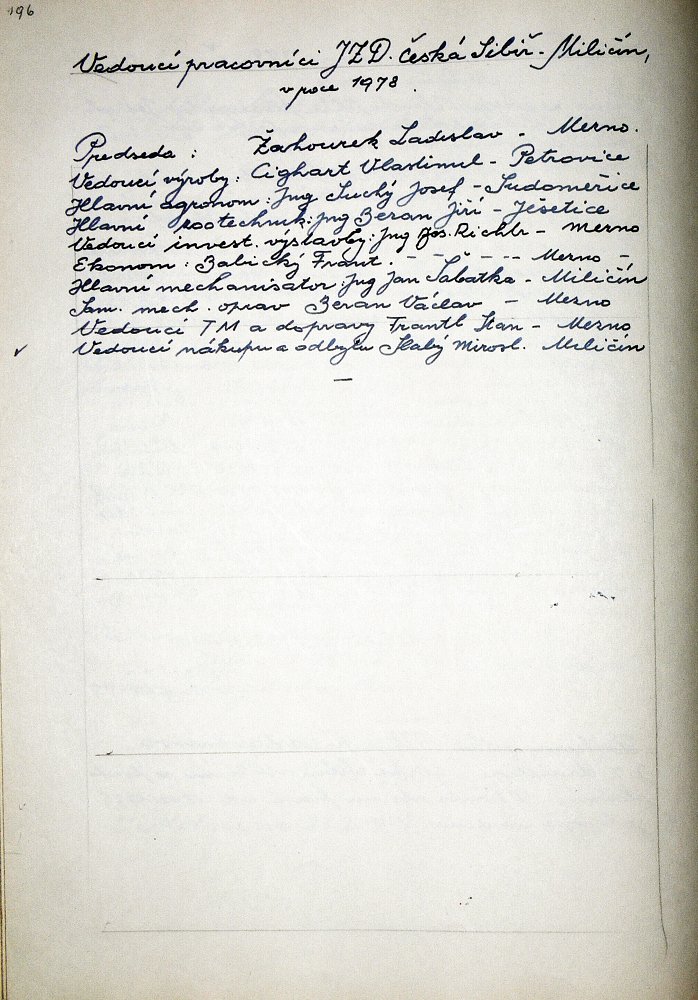 196
Vedoucí pracovníci JZD. Česká Sibiř - Miličín,
v roce 1978.
Předseda : Žahourek Ladislav - Mezno.
Vedoucí výroby : Cighart Vlastimil - Petrovice
Hlavní agronom : Jng Suchý Josef - Sudoměřice
Hlavní zootechnik : Jng Beran Jiří - Ješetice
Vedoucí invest. výstavby : Jng Jos. Richtr - Mezno
Ekonom : Babický Frant. - - - - - Mezno -
Hlavní mechanisátor : Jng Jan Sabatka - Miličín
Sam. mech. oprav Beran Václav - Mezno
Vedoucí TM a dopravy Frantl Stan - Mezno
Vedoucí nákupu a odbytu Slabý Mirosl. Miličín